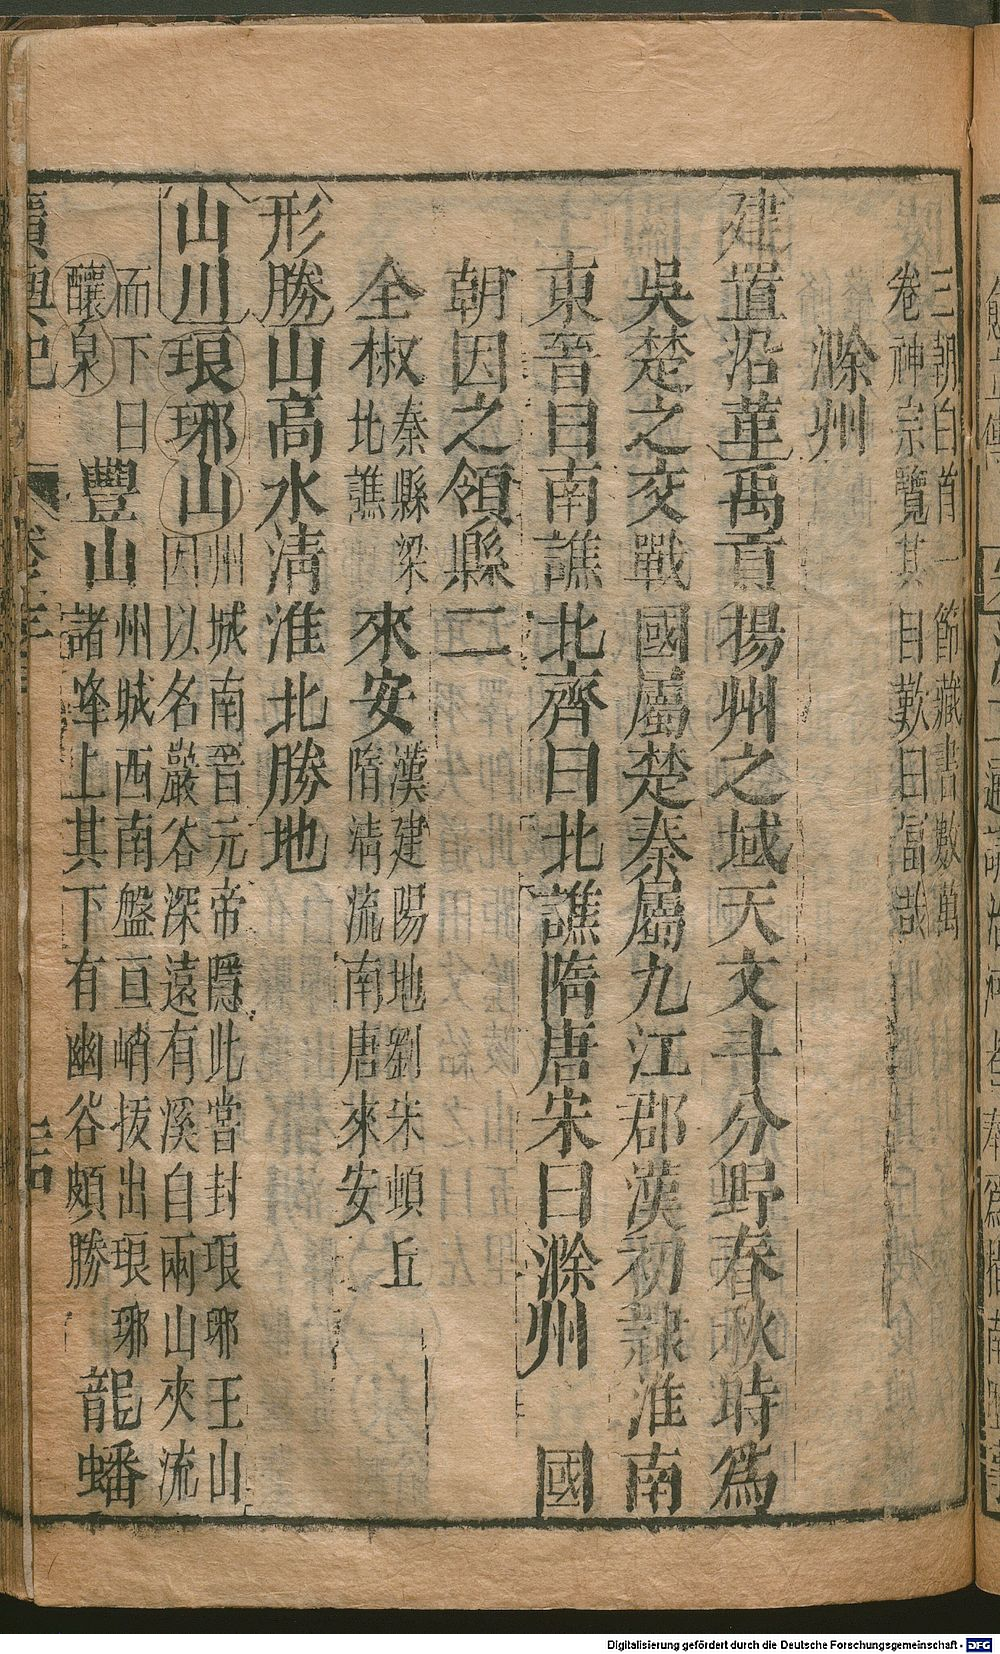 三朝白首一節藏書數萬
卷神宗覽其目歎曰富哉
滁州
建置沿革禹貢揚州之域天文斗分野春秋時爲
吳楚之交戰國屬楚秦屬九江郡漢初隸淮南
東晉曰南譙北齊曰北譙隋唐宋曰滁州 國
朝因之領縣二
全椒秦縣梁
北譙來安漢建陽地劉宋頓丘
隋清流南唐來安
形勝山高水清淮北勝地
山川琅琊山州城南晉元帝隱此嘗封琅琊王山
因以名巖谷深遠有溪自兩山夾流
而下曰
釀泉豐山州城西南盤亘峭拔出琅琊
諸峰上其下有幽谷頗勝龍蟠
廣輿記
Digitalisierung gefördert durch die Deutsche Forschungsgemeinschaft - DFG